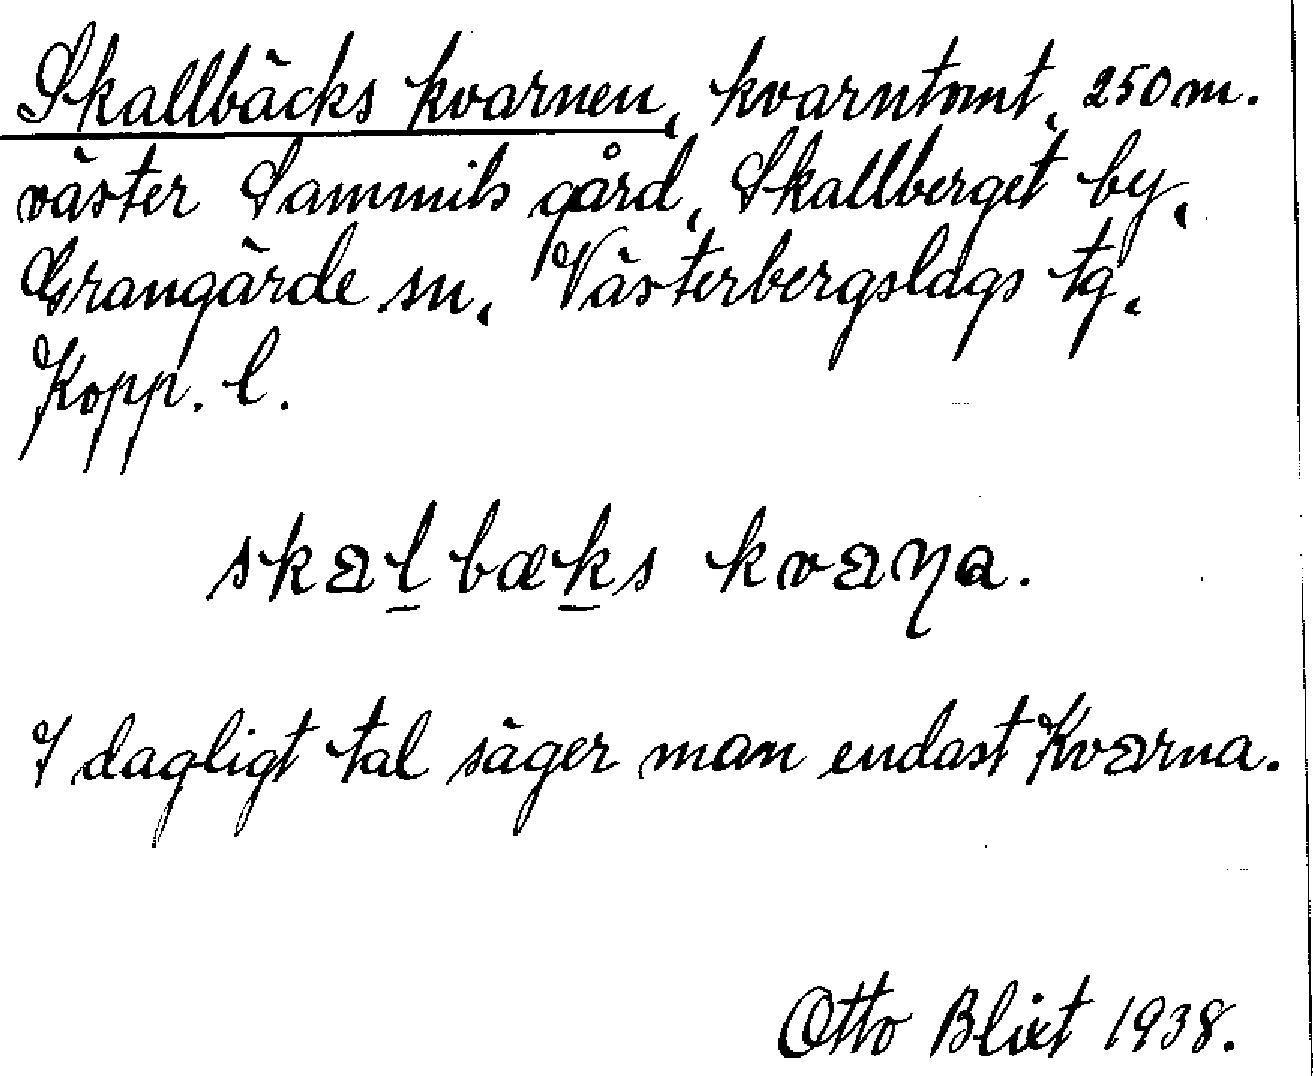 Skallbäcks kvarnen, kvarntomt, 250 m.
väster Sammils gård, Skallberget by,
Grangärde sn, Västerbergslags tg,
Kopp. l.
skaḻbæḵs kvaɳa.
I dagligt tal säger man endast Kvarna.
Otto Blixt 1938.